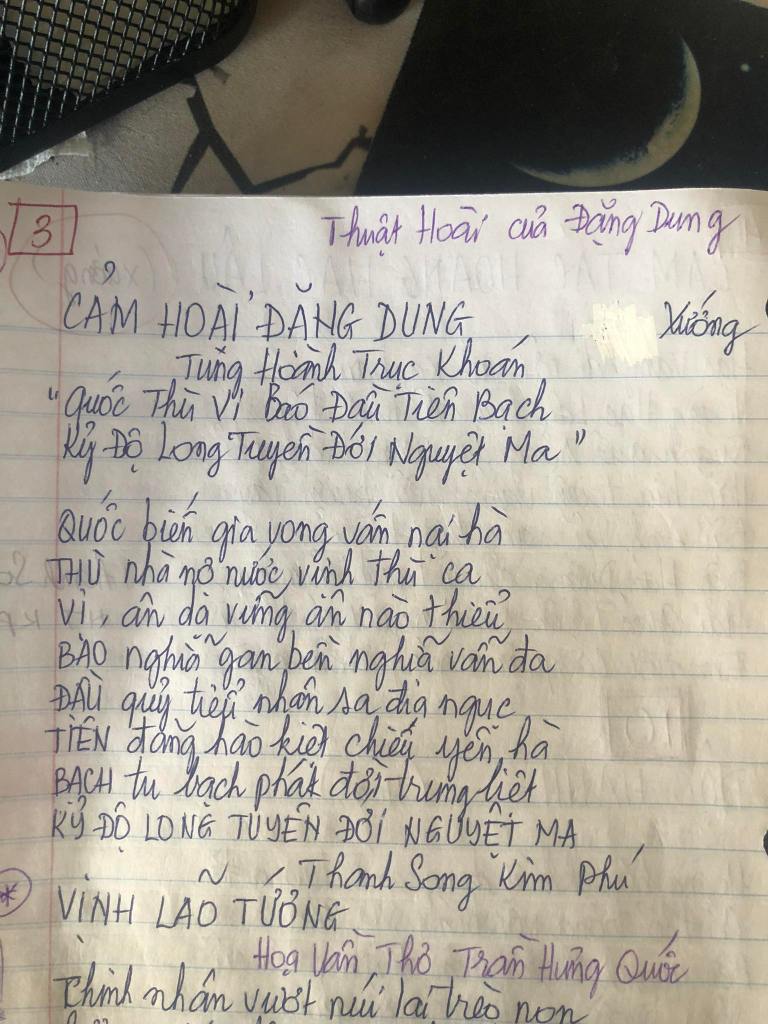 3
Thuật Hoài của Đặng Dung
CẢM HOÀI ĐẶNG DUNG
Xướng
Tung Hoành Trục Khoán
"Quốc Thù Vị Báo Đầu Tiên Bạch
Kỷ Độ Long Tuyền Đới Nguyệt Ma"
QUỐC biến gia vong vấn nại hà
THÙ nhà nợ nước, vịnh thù ca
VỊ, ân dạ vững ân nào thiểu
BÁO nghĩa gan bền nghĩa vẫn đa
ĐẦU quỷ tiểu nhân sa địa ngục
TIÊN đấng hào kiệt chiếu yên hà
BẠCH tu bạch phát đời trung liệt
KỶ ĐỘ LONG TUYỀN ĐỚI NGUYỆT MA
Thanh Song Kim Phú
*
VỊNH LÃO TƯỚNG
Hoạ Vần Thơ Trần Hưng Quốc
Thình nhân vượt núi lại trèo non